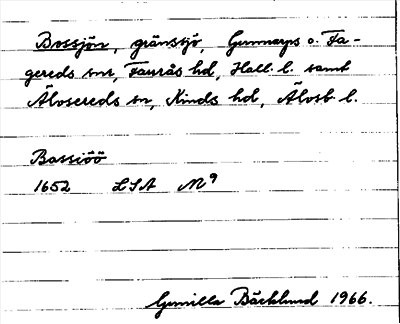 Bossjön, gränssjö, Gunnarps o. Fa-
gereds snr, Faurås hd, Hall. l. samt
Älvsereds sn, Kinds hd, Älvsb. l.
Bassiöö
1652 LSA M⁹
Gunilla Bäcklund 1966.